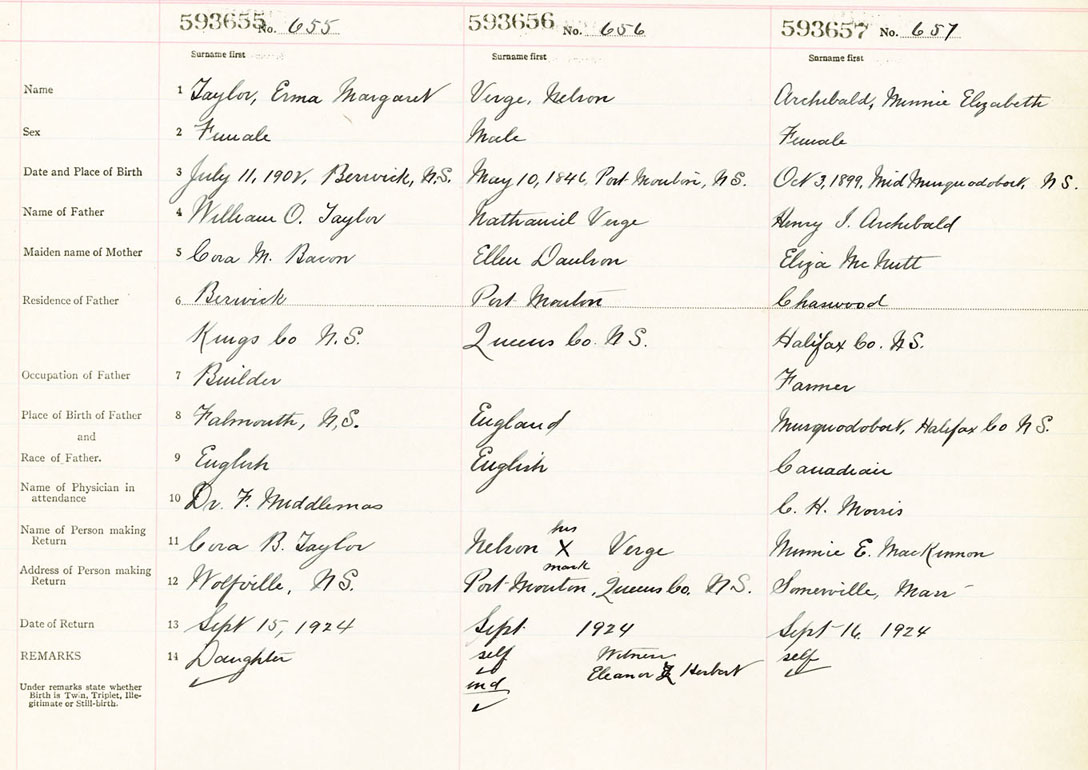 593655 No. 655 593656 No. 656 593657 No. 657
Surname first Surname first Surname first
Name 1 Taylor, Erma Margaret Verge, Nelson Archibald, Minnie Elizabeth
Sex 2 Female Male Female
Date and Place of Birth 3 July 11, 1902, Berwick, N.S. May 10, 1846, Port Mouton, N.S. Oct 3, 1899, Mid Musquodoboit, N.S.
Name of Father 4 William O. Taylor Nathaniel Verge Henry I. Archibald
Maiden name of Mother 5 Cora M. Bacon Ellen Eliza McNutt
Residence of Father 6 Berwick Port Mouton Chaswood
Kings Co N.S. Queens Co. N.S. Halifax Co. N.S.
Occupation of Father 7 Builder Farmer
Place of Birth of Father 8 Falmouth, N.S. England Musquodoboit, Halifax Co N.S.
and
Race of Father. 9 English English Canadian
Name of Physician in
attendance 10 Dr. F. Middlemas C. H. Morris
Name of Person making
Return 11 Cora B. Taylor Nelson his X mark Verge Minnie E. MacKinnon
Address of Person making
Return 12 Wolfville, N.S. Port Mouton, Queens Co. N.S. Somerville, Mass
Date of Return 13 Sept 15, 1924 Sept 1924 Sept 16 1924
REMARKS 14 Daughter self Witness self
Eleanor Herbert
ind
Under remarks state whether
Birth is Twin, Triplet, Ille-
gitimate or Still-birth.